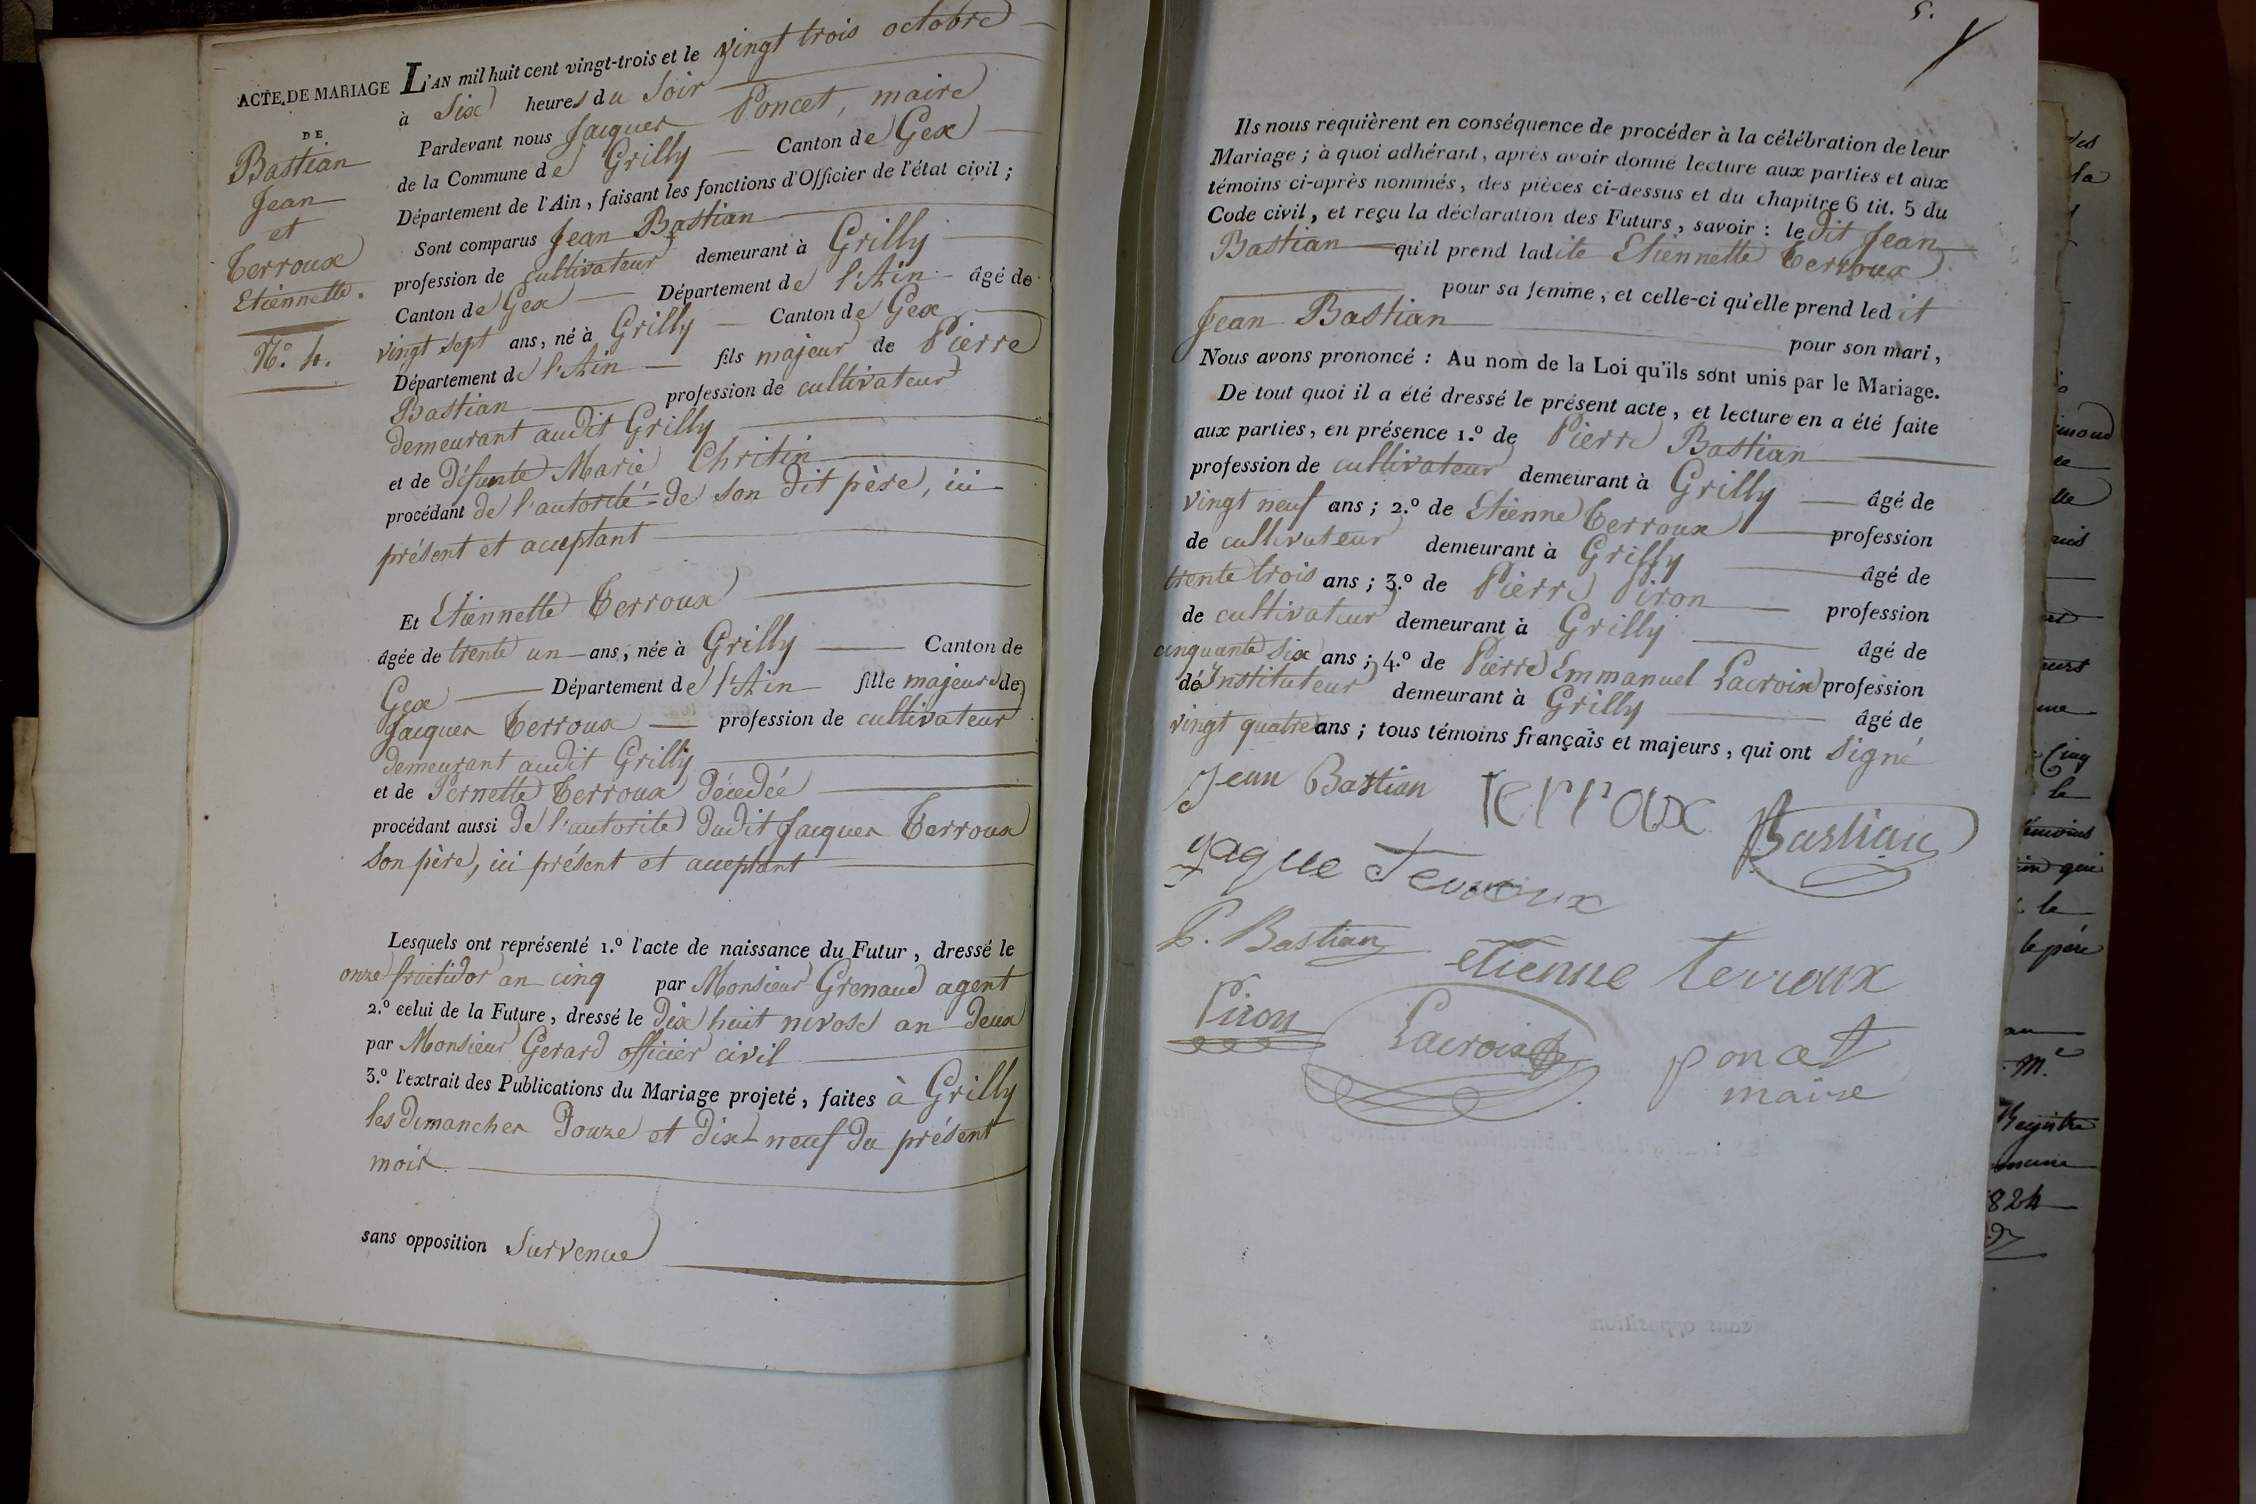 ACTE DE MARIAGE
DE
Bastian
Jean
et
Terroux
Etiennette.
N.º 4.
L'AN mil huit cent vingt-trois et le vingt trois octobre
à Six heures du Soir
Pardevant nous Jacques Poncet, maire
de la Commune de Grilly Canton de Gex
Département de l'Ain, faisant les fonctions d'Officier de l'état civil;
Sont comparus Jean Bastian
profession de cultivateur demeurant à Grilly
Canton de Gex Département de l'Ain âgé de
vingt sept ans, né à Grilly Canton de Gex
Département de l'Ain fils majeur de Pierre
Bastian profession de cultivateur
demeurant audit Grilly
et de défunte Marie Chritin
procédant de l'autorité de son dit père, ici
présent et acceptant
Et Etiennette Terroux
âgée de trente un ans, née à Grilly Canton de
Gex Département de l'Ain fille majeure de
Jacques Terroux profession de cultivateur
demeurant audit Grilly
et de Pernette Terroux décedée
procédant aussi de l'autorité dudit Jacques Terroux
Son père, ici présent et acceptant
Lesquels ont représenté 1.º l'acte de naissance du Futur, dressé le
onze fruitidor an cinq par Monsieur Grenaud agent
2.º celui de la Future, dressé le dix huit nivose an deux
par Monsieur Gerard officier civil
3.º l'extrait des Publications du Mariage projeté, faites à Grilly
les dimanches Douze et dix neuf du présent
mois
sans opposition Survenue
5.
Ils nous requièrent en conséquence de procéder à la célébration de leur
Mariage; à quoi adhérant, après avoir donné lecture aux parties et aux
témoins ci-après nommés, des pièces ci-dessus et du chapitre 6 tit. 5 du
Code civil, et reçu la déclaration des Futurs, savoir: ledit Jean
Bastian qu'il prend ladite Etiennette Terroux
pour sa femme, et celle-ci qu'elle prend ledit
Jean Bastian pour son mari,
Nous avons prononcé: Au nom de la Loi qu'ils sont unis par le Mariage.
De tout quoi il a été dressé le présent acte, et lecture en a été faite
aux parties, en présence 1.º de Pierre Bastian
profession de cultivateur demeurant à Grilly âgé de
vingt neuf ans; 2.º de Etienne Terroux profession
de cultivateur demeurant à Grilly âgé de
trente trois ans; 3.º de Pierre Piron profession
de cultivateur demeurant à Grilly âgé de
cinquante six ans; 4.º de Pierre Emmanuel Lacroix profession
de Instituteur demeurant à Grilly âgé de
vingt quatre ans; tous témoins français et majeurs, qui ont signé
Jean Bastian Terroux Bastian
Jaque Terroux
P. Bastian etienne terroux
Piron Lacroix poncet
maire
la
Cinq
le
qui
le
le père
M.e
Registre
1824